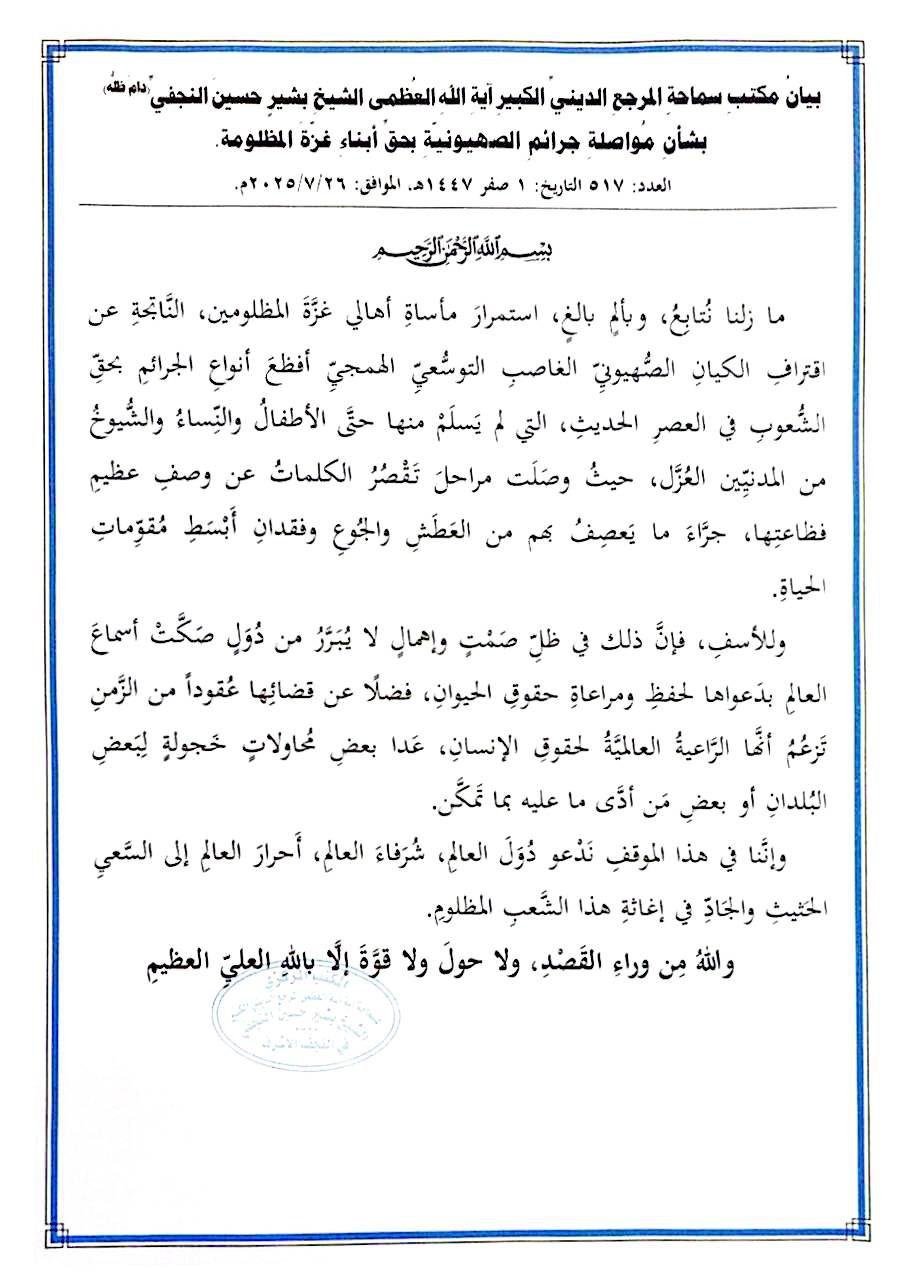 بيانُ مكتبِ سماحةِ المرجعِ الدينيِّ الكبيرِ آيةِ اللهِ العُظمى الشيخِ بشير حسين النجفيّ (دامَ ظلُّه)
بشأنِ مُواصلةِ جرائمِ الصهيونيّةِ بحقِّ أبناءِ غزّةَ المظلومة.
العدد: ٥١٧ التاريخ: ١ صفر ١٤٤٧هـ، الموافق: ٢٠٢٥/٧/٢٦م.
بِسْمِ اللَّهِ الرَّحْمَٰنِ الرَّحِيمِ
ما زلنا نُتابِعُ، وبألمٍ بالغٍ، استمرارَ مأساةِ أهالي غزَّةَ المظلومين، النَّاتجةِ عن
اقترافِ الكيانِ الصُّهيونيِّ الغاصبِ التوسُّعيِّ الهمجيِّ أفظعَ أنواعِ الجرائمِ بحقِّ
الشُّعوبِ في العصرِ الحديثِ، التي لم يَسلَمْ منها حتَّى الأطفالُ والنِّساءُ والشُّيوخُ
من المدنيِّين العُزَّل، حيثُ وصَلَت مراحلَ تَقْصُرُ الكلماتُ عن وصفِ عظيمِ
فظاعتِها، جرَّاءَ ما يَعصِفُ بهم من العَطَشِ والجُوعِ وفقدانِ أَبْسَطِ مُقوِّماتِ
الحياةِ.
وللأسفِ، فإنَّ ذلك في ظلِّ صَمْتٍ وإهمالٍ لا يُبَرَّرُ من دُوَلٍ صَكَّتْ أسماعَ
العالمِ بدَعواها لحفظِ ومراعاةِ حقوقِ الحيوانِ، فضلًا عن قضائِها عُقوداً من الزَّمنِ
تَزعُمُ أنَّها الرَّاعيةُ العالميَّةُ لحقوقِ الإنسانِ، عَدا بعضِ مُحاولاتٍ خَجولةٍ لِبَعضِ
البُلدانِ أو بعضِ مَن أدَّى ما عليه بما تمَكَّن.
وإنَّنا في هذا الموقفِ نَدْعو دُوَلَ العالمِ، شُرَفاءَ العالمِ، أَحرارَ العالمِ إلى السَّعيِ
الحَثيثِ والجَادِّ في إغاثةِ هذا الشَّعبِ المظلومِ.
واللهُ مِن وراءِ القَصْدِ، ولا حولَ ولا قوَّةَ إلَّا باللهِ العليِّ العظيمِ
المكتب المركزي
في النجف الأشرف